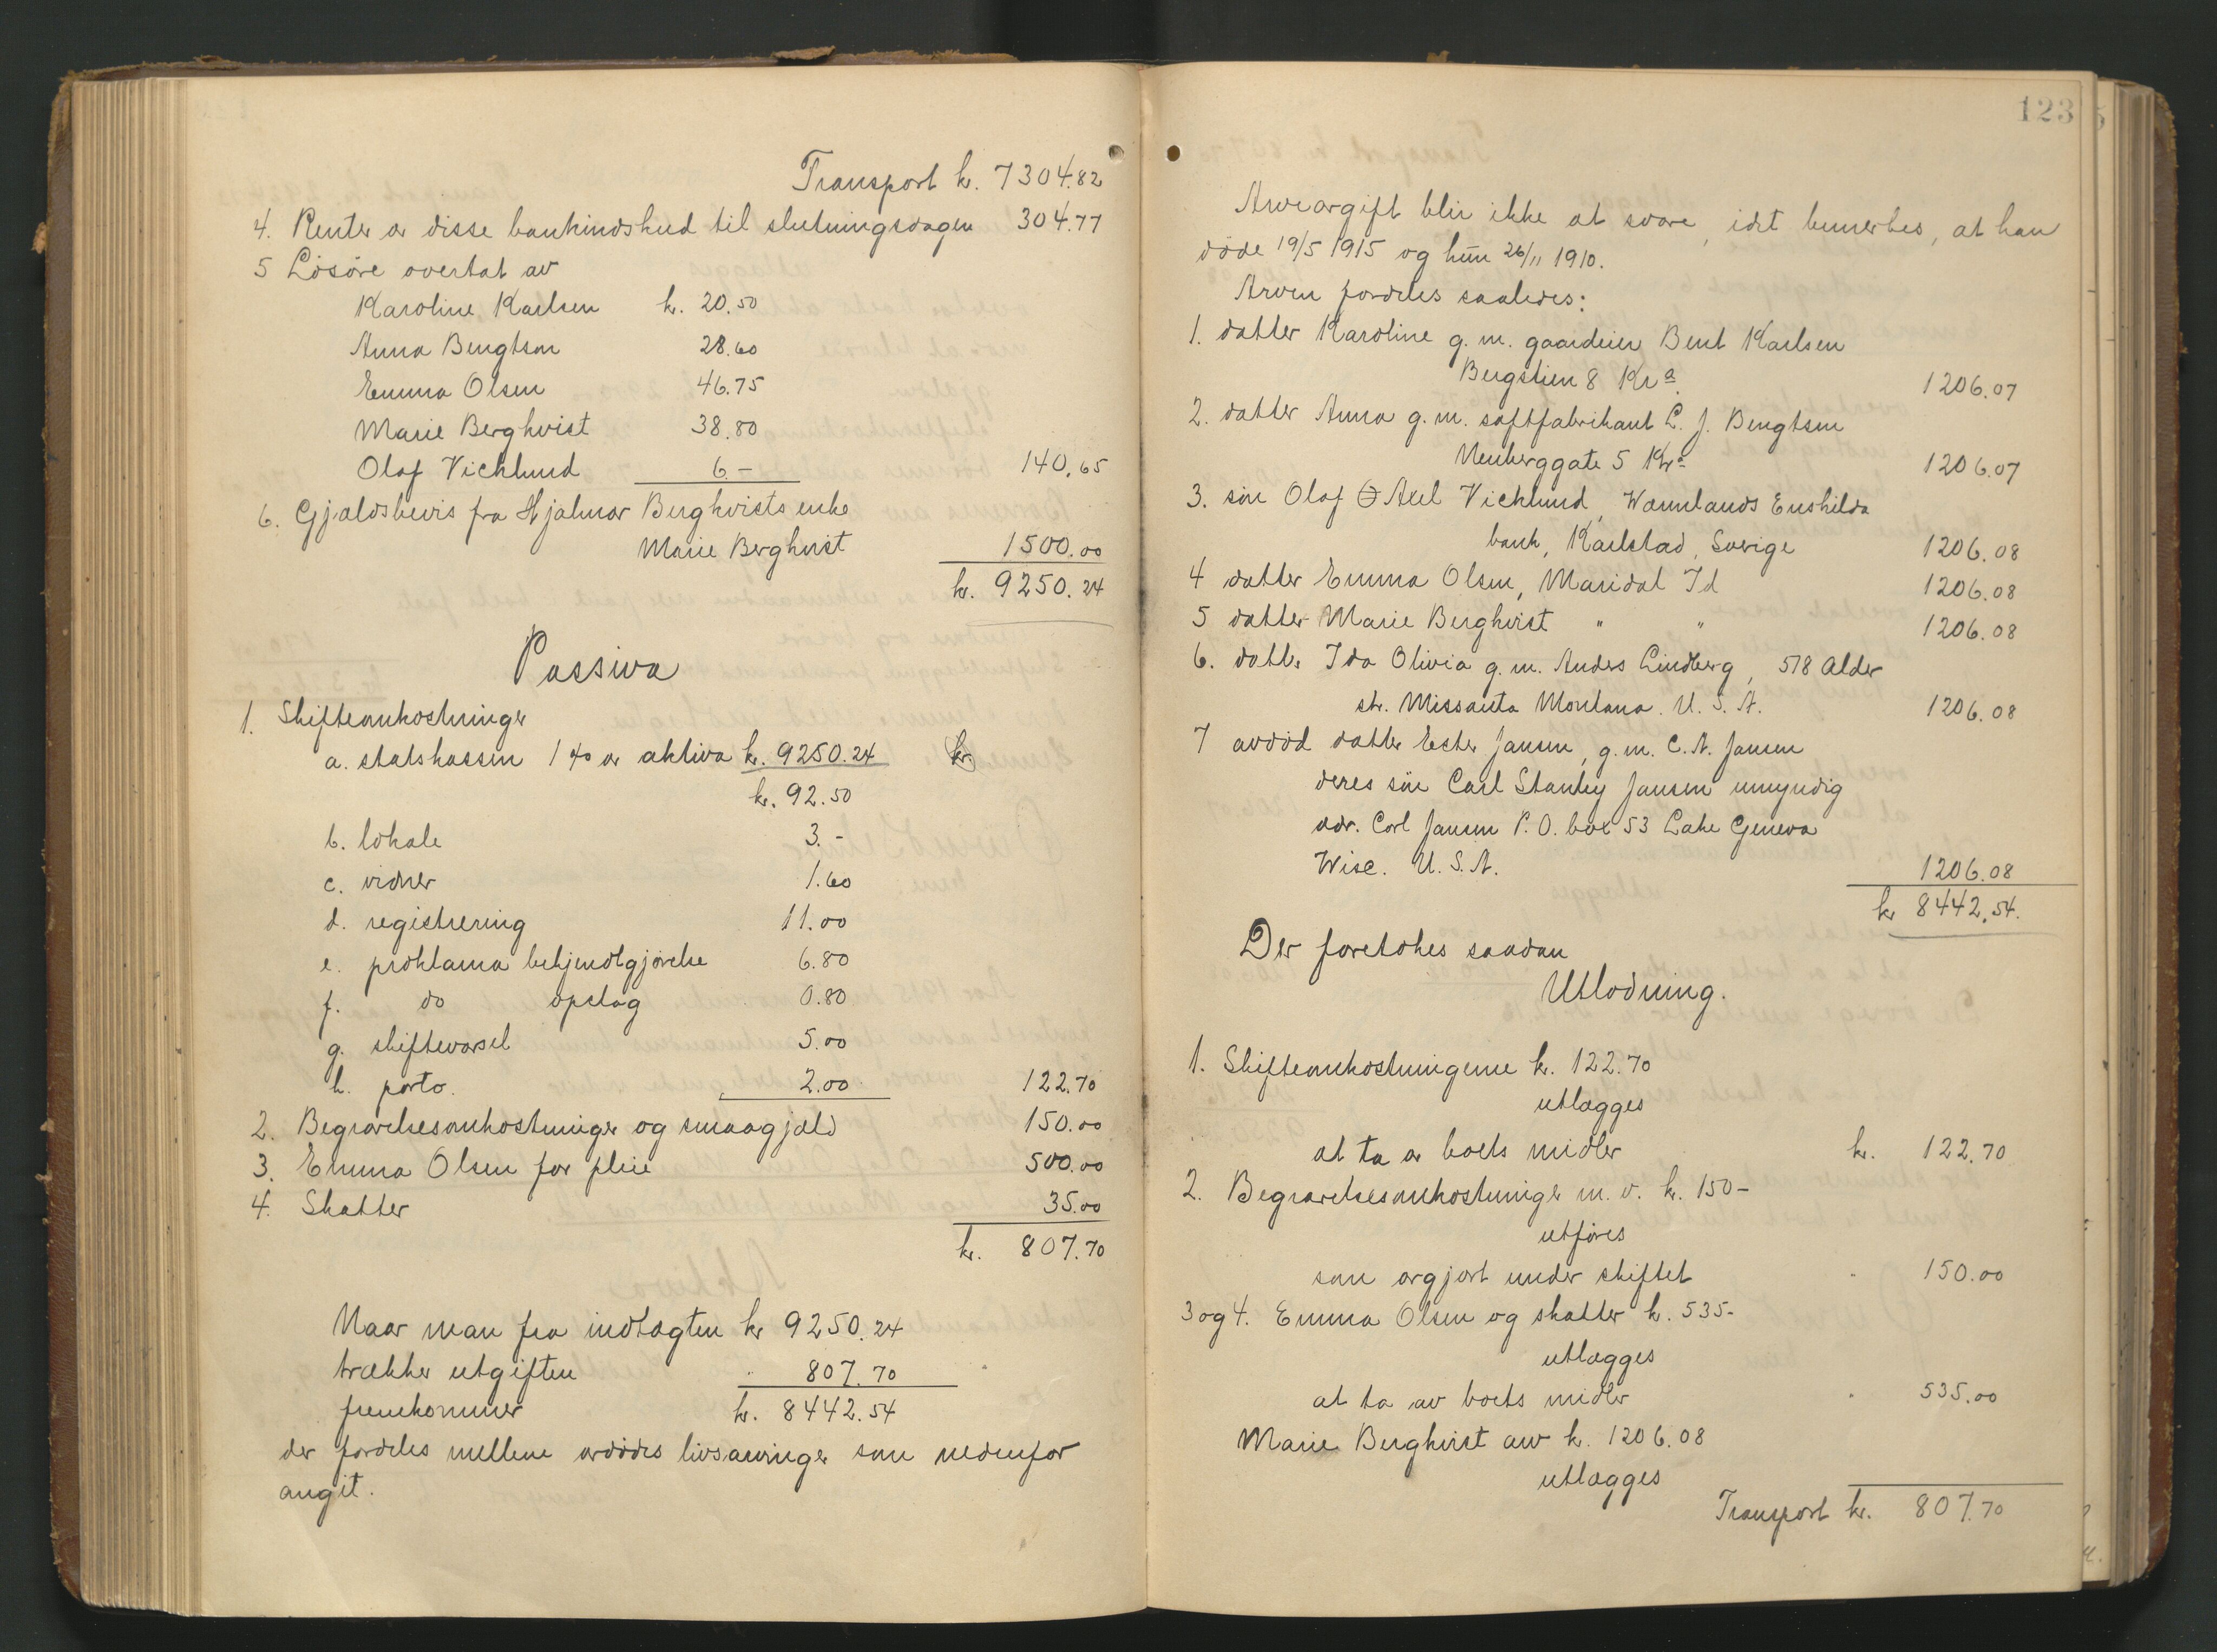 Transport kr. 7304.82
4. Renter av disse bankindskud til slutningsdagen 304.77
5 Løsøre overtat av
Karoline Karlsen kr. 20.50
Anna Bengtson 28.60
Emma Olsen 46.75
Marie Berghvist 38.80
Olaf Vicklund 6.- 140.65
6. Gjældsbevis fra Hjalmar Berghvists enke
Marie Berghvist 1500.00
kr. 9250.24
Passiva
1. Skifteomkostninger
a. statskassen 1 % av aktiva kr. 9250.24 kr.
kr. 92.50
b. lokale 3.-
c. vidner 1.60
d. registrering 11.00
e. proklama bekjendtgjørelse 6.80
f. do opslag 0.80
g. skiftevarsel 5.00
h. porto. 2.00 122.70
2. Begravelsesomkostninger og smaagjæld 150.00
3. Emma Olsen for pleie 500.00
4. Skatter 35.00
kr. 807.70
Naar man fra indtægten kr 9250.24
trækker utgiften " 807.70
fremkommer kr. 8442.54
der fordeles mellem avdødes livsarvinger som nedenfor
angit.
123
Arveavgift blir ikke at svare, idet bemerkes, at han
døde 19/5 1915 og hun 26/11 1910.
Arven fordeles saaledes:
1. datter Karoline g. m. gaardeier Bent Karlsen
Bergstien 8 Kra. 1206.07
2. datter Anna g. m. saftfabrikant L. J. Bengtsen
Neuberggate 5 Kra. 1206.07
3. søn Olaf Axel Vicklund, Wermlands Enskilda
bank, Karlstad, Sverige 1206.08
4 datter Emma Olsen, Maridal Id 1206.08
5 datter Marie Berghvist " " 1206.08
6. datter Ida Olivia g. m. Anders Lindberg, 518 Alder
str. Missauta Montana. U. S. A. 1206.08
7 avdød datter Ester Jansen, g. m. C. A. Jansen
deres søn Carl Stanley Jansen umyndig
adr. Carl Jansen P. O. box 53 Lake Geneva
Wisc. U. S. A. 1206.08
kr 8442.54.
Der foretokes saadan
Utlodning.
1. Skifteomkostningerne kr. 122.70
utlægges
at ta av boets midler kr. 122.70
2. Begravelsesomkostninger m. v. kr. 150-
utføres
som avgjort under skiftet " 150.00
3 og 4. Emma Olsen og skatter kr. 535-
utlægges
at ta av boets midler " 535.00
Marie Berghvist arv kr. 1206.08
utlægges
Transport kr. 807.70